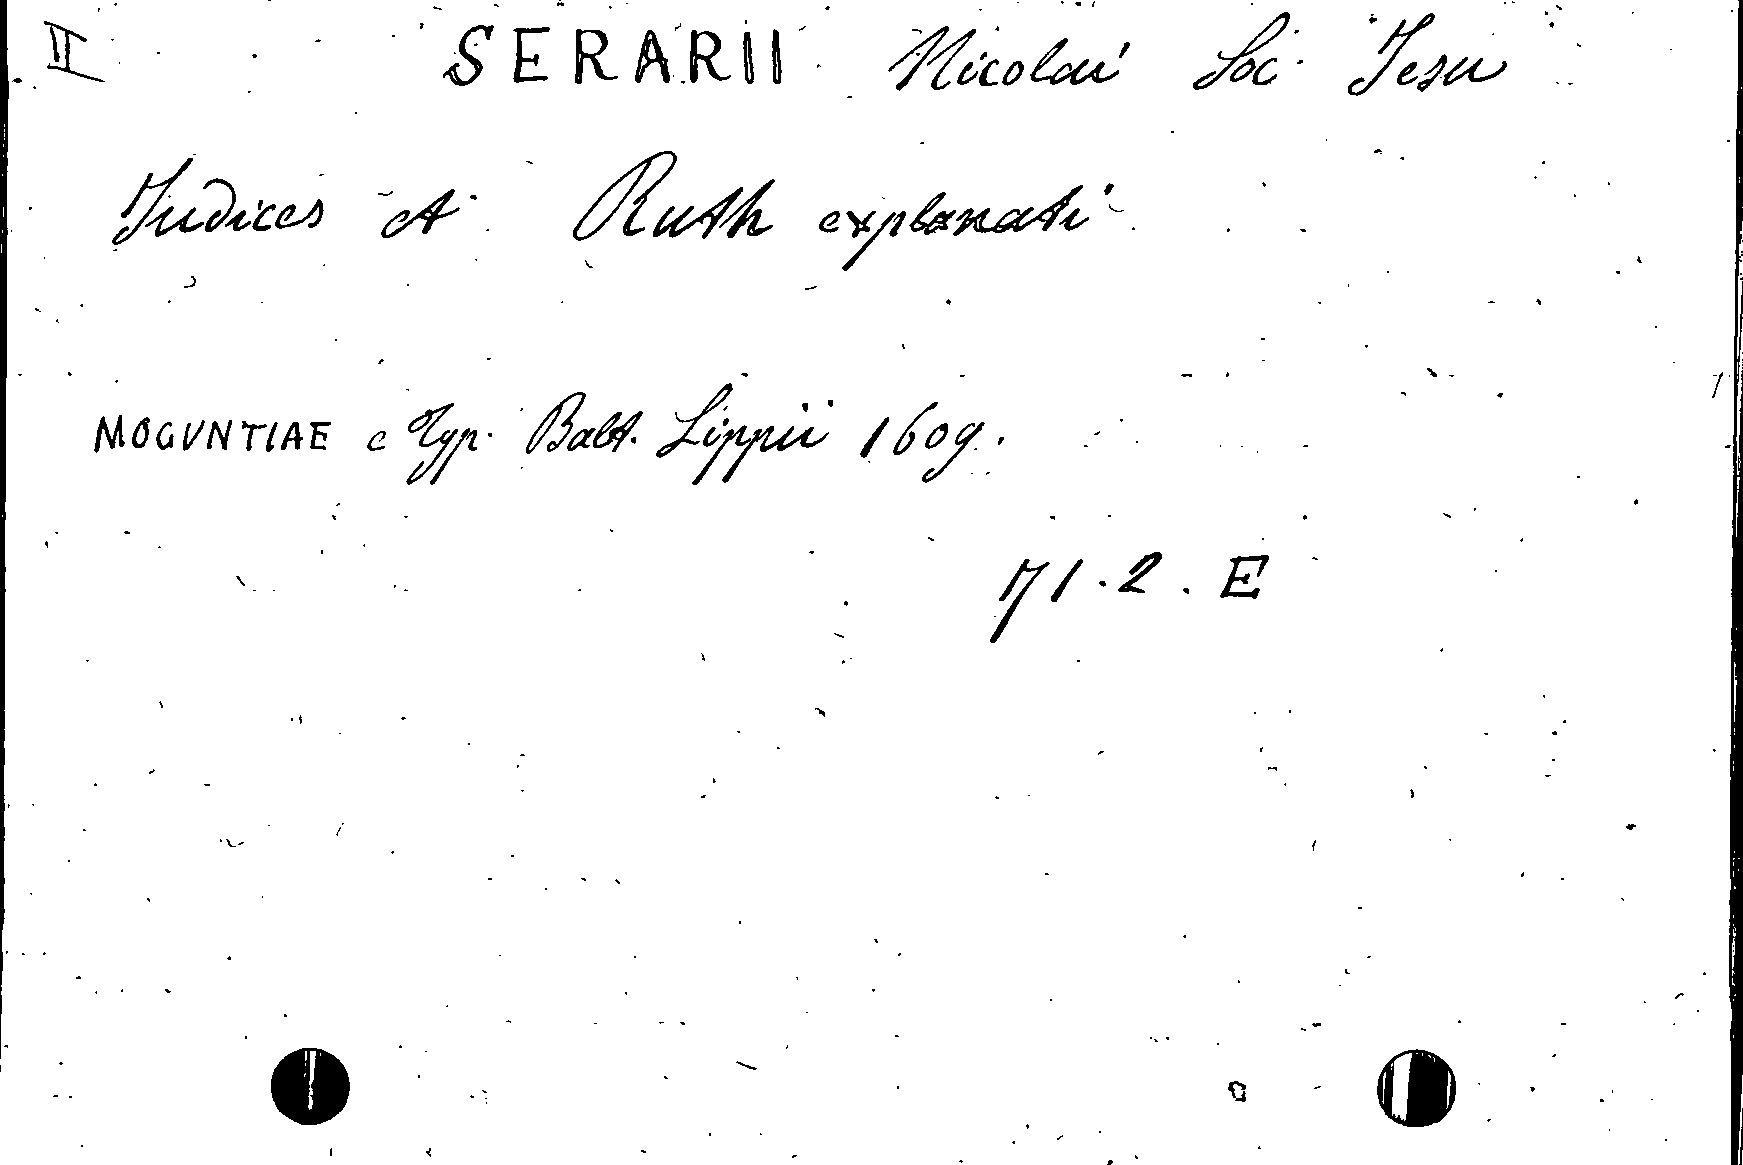 II SERARII Nicolai Soc. Jesu
Judices et Ruth explanati
MOGVNTIAE e Typ. Balt. Lippii 1609.
71.2.E